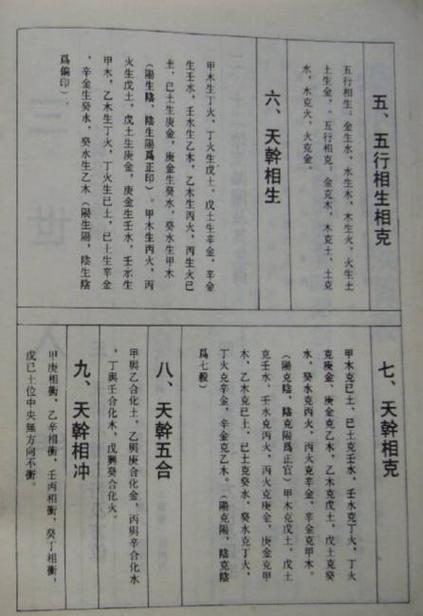 五、五行相生相克
五行相生：金生水，水生木，木生火，火生土
土生金，。五行相克。金克木，木克土，土克
水，水克火，火克金。
六、天幹相生
甲木生丁火，丁火生戊土，戊土生辛金，辛金
生壬水，壬水生乙木，乙木生丙火，丙火生已
土，已土生庚金，庚金生癸水，癸水生甲木
（陽生陰，陰生陽爲正印）。甲木生丙火，丙
火生戊土，戊土生庚金，庚金生壬水，壬水生
甲木，乙木生丁火，丁火生已土，已土生辛金
，辛金生癸水，癸水生乙木（陽生陽，陰生陰
爲偏印）。
七、天幹相克
甲木克已土，已土克壬水，壬水克丁火，丁火
克庚金，庚金克乙木，乙木克戊土，戊土克癸
水，癸水克丙火，丙火克辛金，辛金克甲木。
（陽克陰，陰克陽爲正官）甲木克戊土，戊土
克壬水，壬水克丙火，丙火克庚金，庚金克甲
木，乙木克已土，已土克癸水，癸水克丁火，
丁火克辛金，辛金克乙木。（陽克陽，陰克陰
爲七殺）
八、天幹五合
甲與乙合化土，乙與庚合化金，丙與辛合化水
，丁與壬合化木，戊與癸合化火。
九、天幹相冲
甲庚相衝，乙辛相衝，壬丙相衝，癸丁相衝，
戊已土位中央無方向不衝。